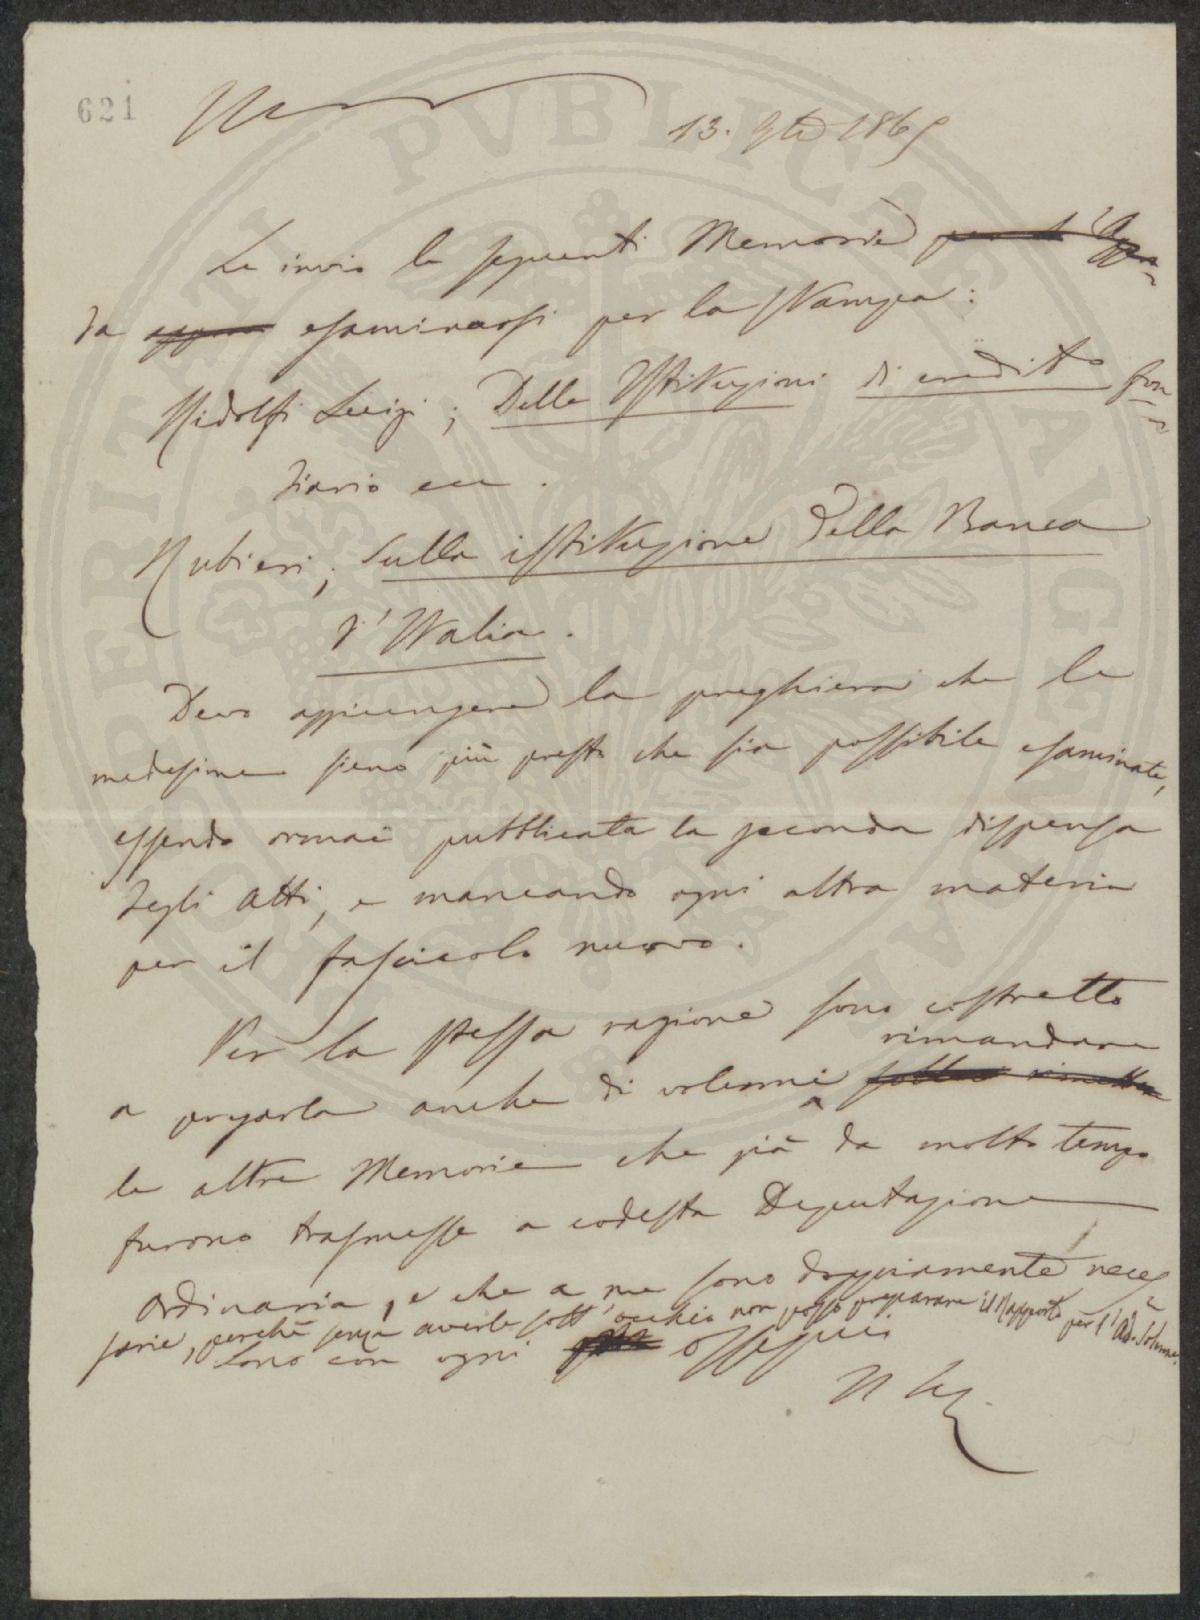 621
13. 9bre 1865
Le invio le seguenti Memorie
da esaminarsi per la stampa:
Ridolfi Luigi; Delle Istituzioni di credito fon=
diario ecc.
Rubieri; Sulla istituzione della Banca
d'Italia.
Devo aggiungere la preghiera che le
medesime sieno più presto che sia possibile esaminate,
essendo ormai pubblicata la seconda dispensa
degli Atti, e mancando ogni altra materia
per il fascicolo nuovo.
Per la stessa ragione sono costretto
rimandare
a pregarla anche di volermi
le altre Memorie che già da molto tempo
furono trasmesse a codesta Deputazione
Ordinaria, e che a me sono doppiamente neces=
sarie, perchè senza averle sott'occhio non posso preparare il Rapporto per l'Ad. Solenne.
Sono con ogni ossequio
PVBLICAE
AVGENDAE
PROSPERITATI